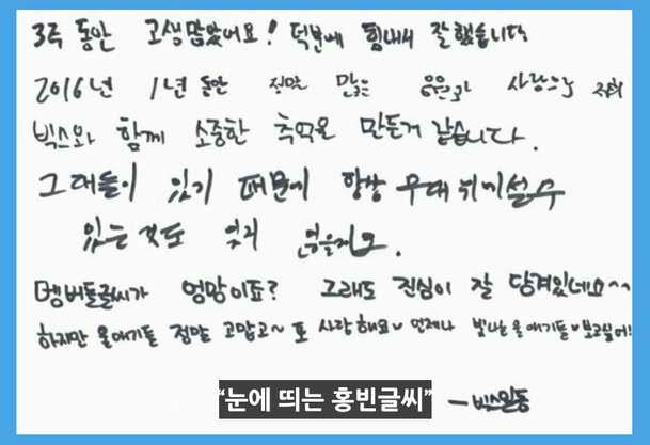 3주 동안 고생많았어요! 덕분에 힘내서 잘했습니다
2016년 1년 동안 정말 많은 응원과 사랑으로 저희
빅스와 함께 소중한 추억을 만든게 같습니다.
그대들이 있기 때문에 항상 무대위에설수
있는 것도 잊지 않을게요.
멤버들글씨가 엉망이죠? 그래도 진심이 잘 담겨있네요~~
하지만 울애기들 정말 고맙고~ 또 사랑해요♥ 언제나 빛나는 울애기들♥보고싶어!
“눈에 띄는 홍빈글씨”